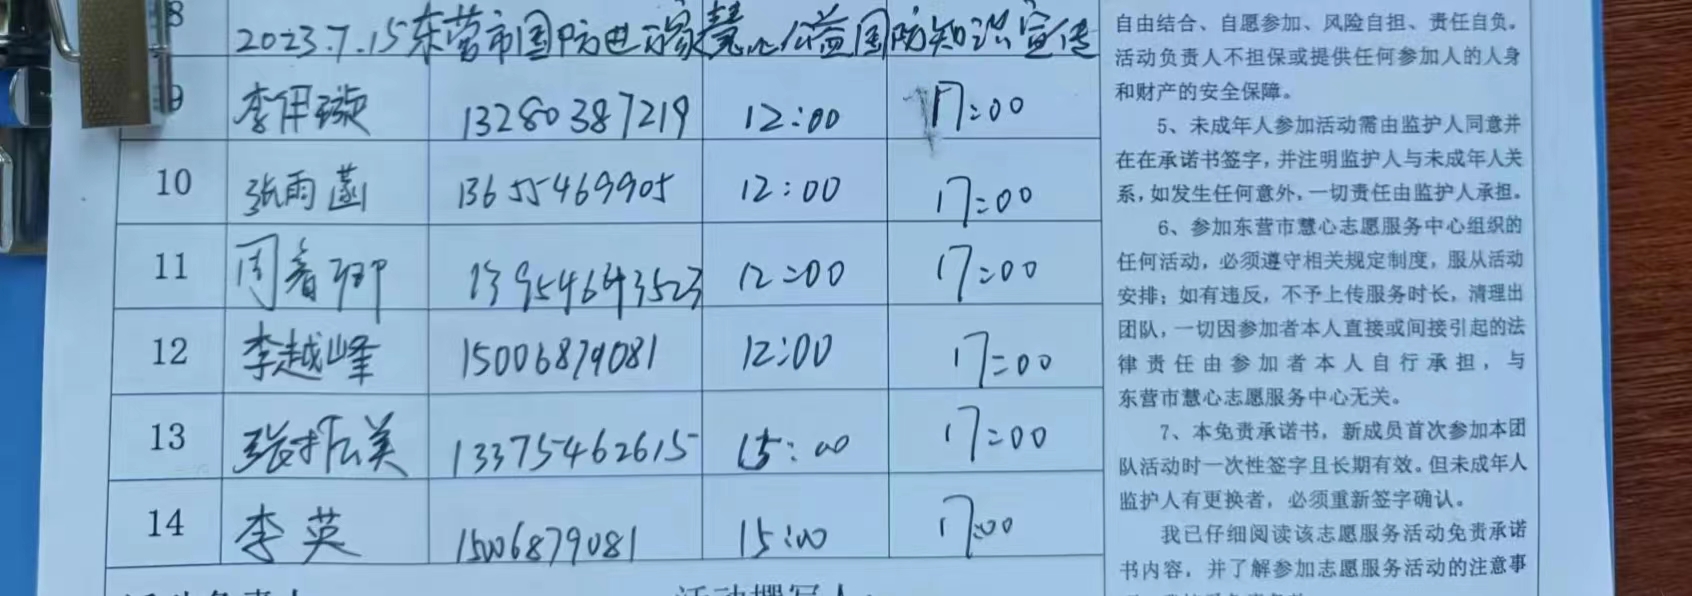 8
2023.7.15东营市国防进万家慧心公益国防知识宣传
9 李伊璇 13280387219 12:00 17:00
10 张雨菡 13655469905 12:00 17:00
11 周春卿 13954643523 12:00 17:00
12 李越峰 15006879081 12:00 17:00
13 张振美 13375462615 15:00 17:00
14 李英 15006879081 15:00 17:00
自由结合、自愿参加、风险自担、责任自负。
活动负责人不担保或提供任何参加人的人身
和财产的安全保障。
5、未成年人参加活动需由监护人同意并
在在承诺书签字，并注明监护人与未成年人关
系，如发生任何意外，一切责任由监护人承担。
6、参加东营市慧心志愿服务中心组织的
任何活动，必须遵守相关规定制度，服从活动
安排；如有违反，不予上传服务时长，清理出
团队，一切因参加者本人直接或间接引起的法
律责任由参加者本人自行承担，与
东营市慧心志愿服务中心无关。
7、本免责承诺书，新成员首次参加本团
队活动时一次性签字且长期有效。但未成年人
监护人有更换者，必须重新签字确认。
我已仔细阅读该志愿服务活动免责承诺
书内容，并了解参加志愿服务活动的注意事